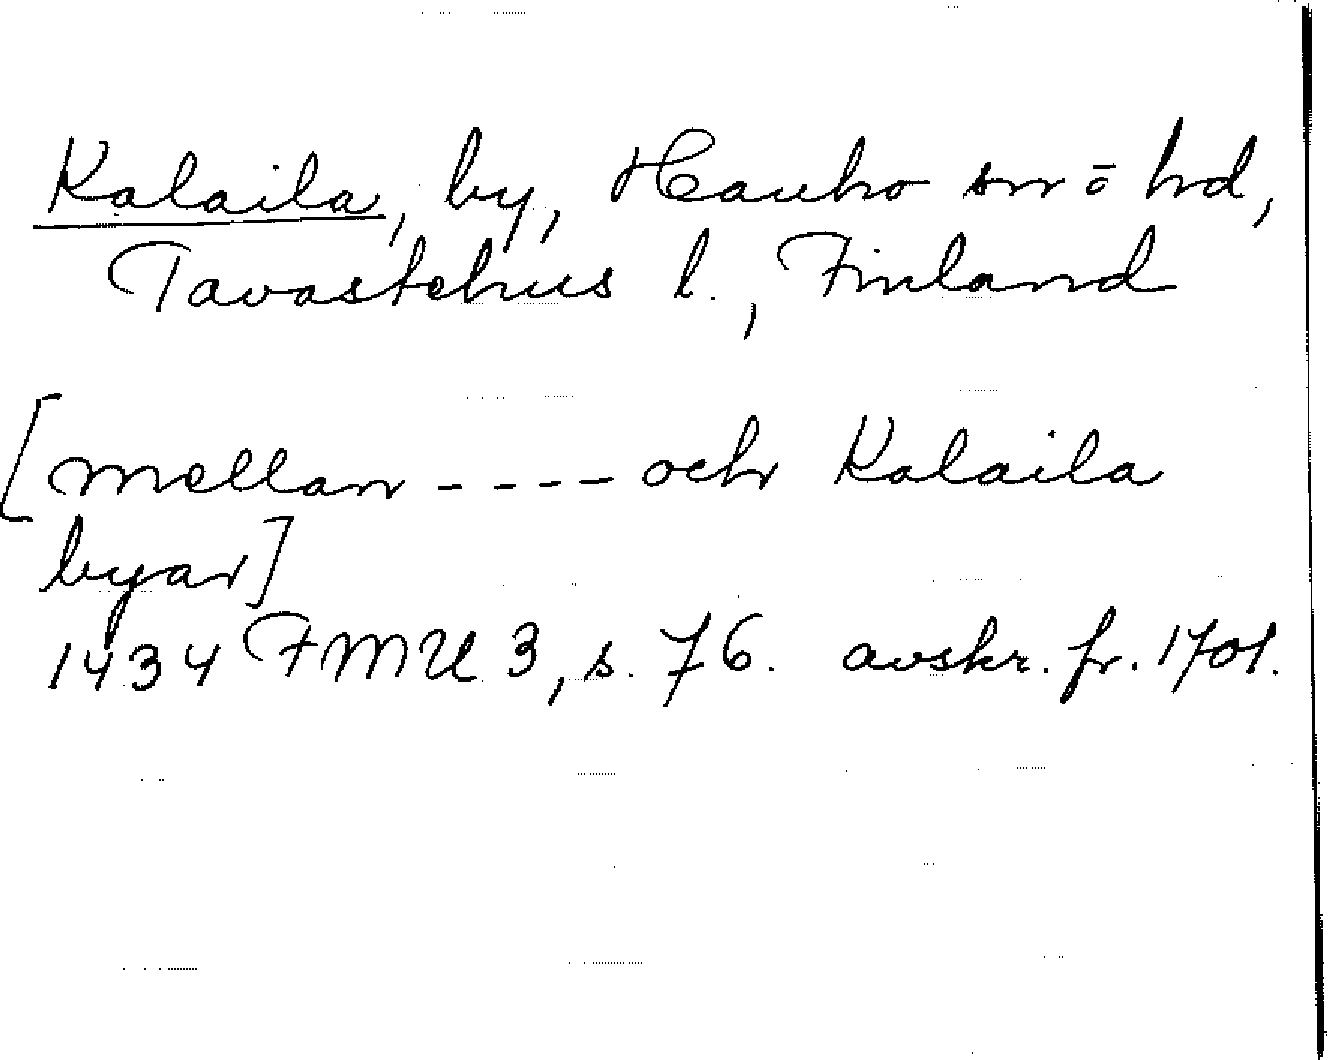 Kalaila, by, Hauho sn o hd,
Tavastehus l., Finland
[mellan - - - - och Kalaila
byar]
1434 FMU 3, s. 76. avskr. fr. 1701.